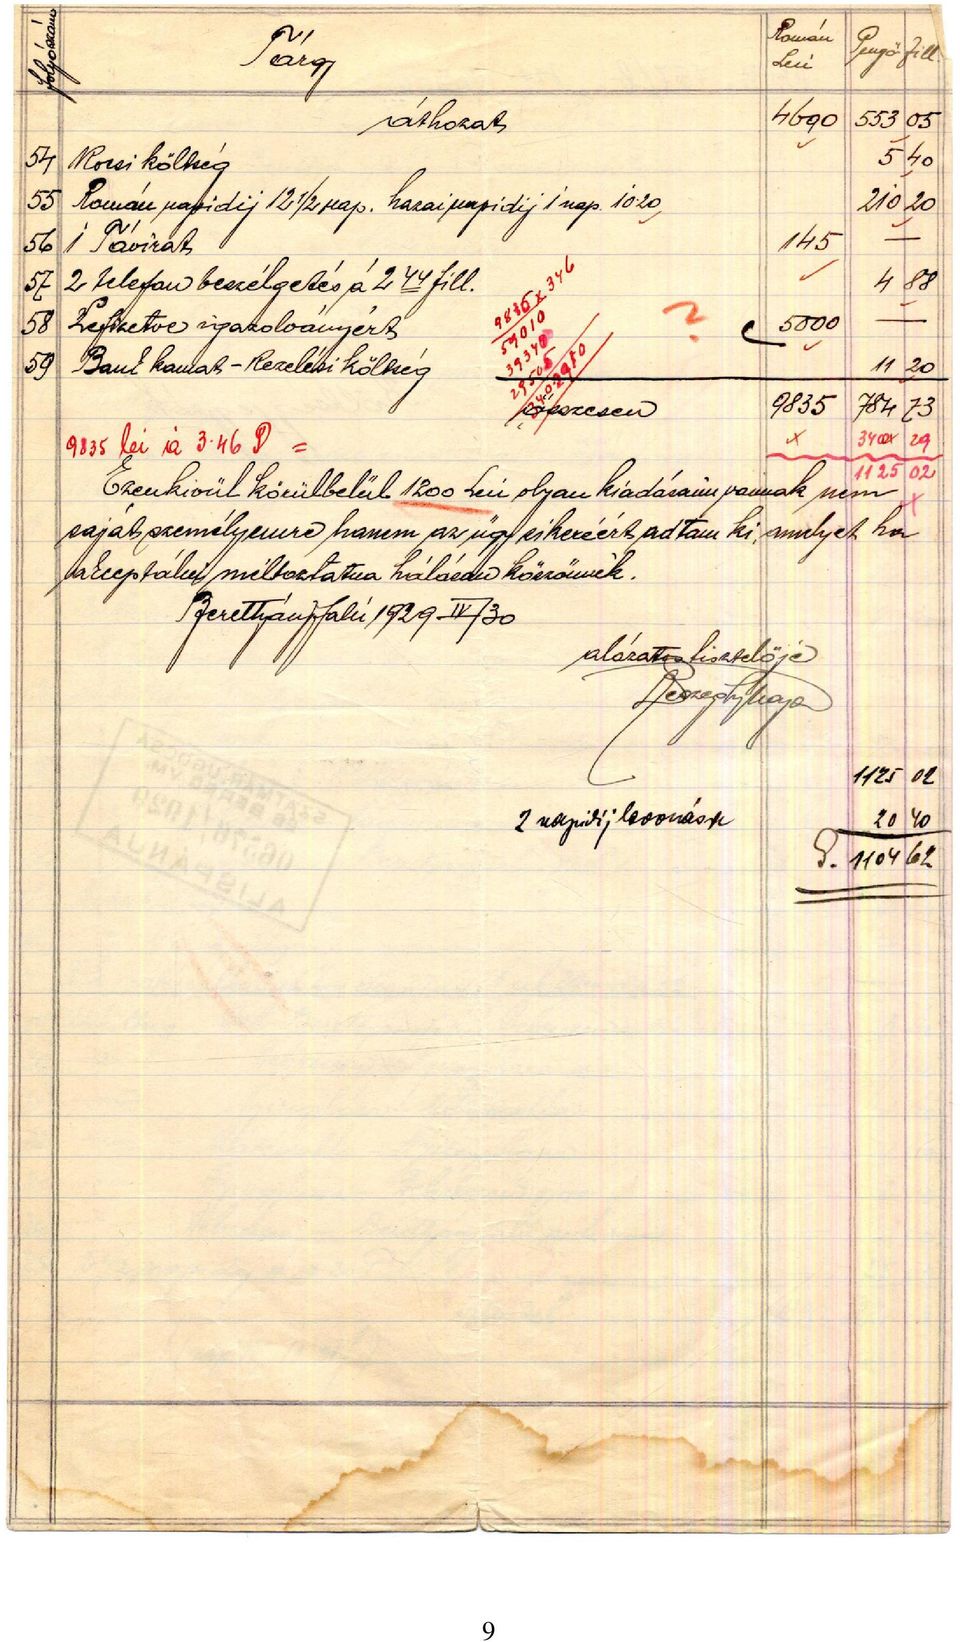 folyószám Tárg Román Lei Pengő fill.
áthozat 4690 553 05
54 Kocsi költség 5 40
55 Román napidíj 12 1/2 nap. hazai napidíj 1 nap 10.20 210 20
56 1 Távirat 145 —
57 2 telefon beszélgetés á 2 44 fill. 4 88
58 Lefizetve igazolványért ? 5000 —
59 Bank kamat - Kezelési költség 11 20
9835 x 346
59010
39340
29505
összesen 9835 784 73
9835 lei á 3.46 P = x 340 29
1125 02
Ezenkivül körülbelül 1200 Lei olyan kiadásaim vannak nem
saját személyemre hanem az ügy sikeréért adtam ki, amelyet ha
akceptálni méltóztatna hálásan köszönnék.
Berettyóujfalu 1929 IV/30
alázatos tisztelője
1125 02
2 napidíj levonása 20 40
P. 1104 62
SZATMÁR, UGOCSA
ALISPÁNJA
9